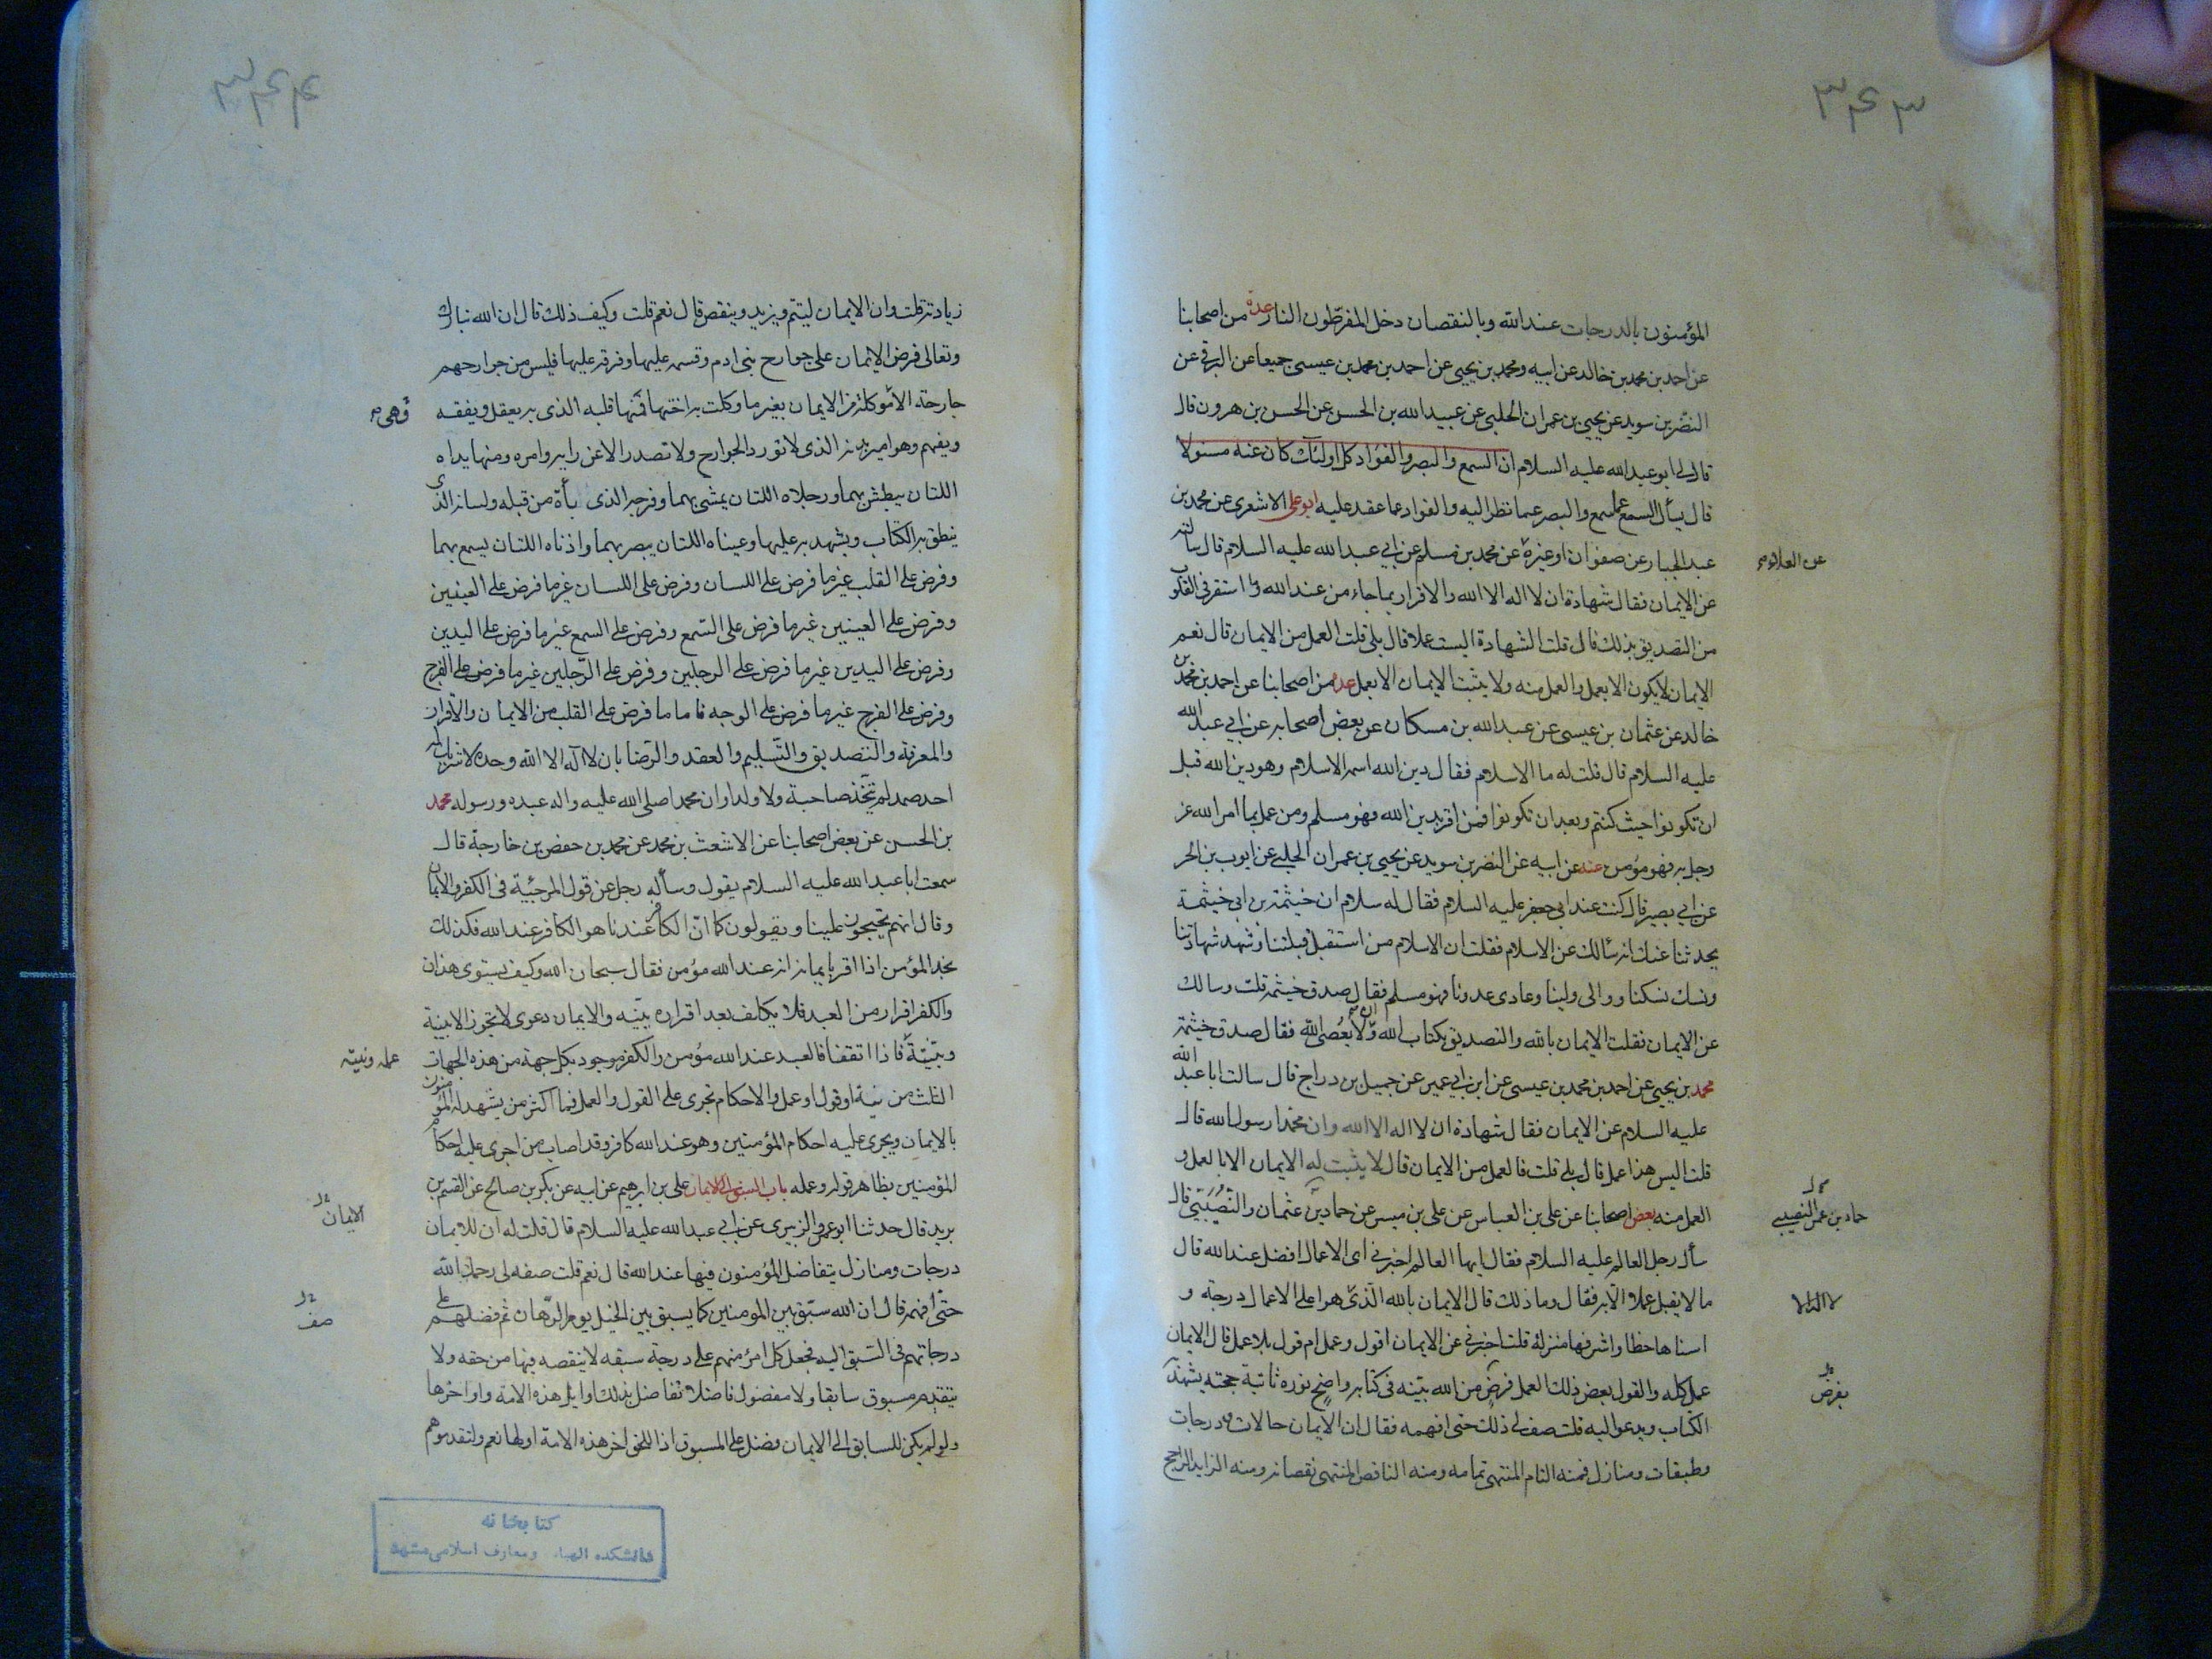 ۳۴۳
المؤمنون بالدرجات عند الله وبالنقصان دخل المفرطون النار عدة من اصحابنا
عن احمد بن محمد بن خالد عن ابيه ومحمد بن يحيى عن احمد بن محمد بن عيسى جميعا عن البرقي عن
النضر بن سويد عن يحيى بن عمران الحلبي عن عبيد الله بن الحسن عن الحسن بن هرون قال
قال لي ابو عبد الله عليه السلام ان السمع والبصر والفؤاد كل اولئك كان عنه مسئولا
قال يسأل السمع عما سمع والبصر عما نظر اليه والفؤاد عما عقد عليه ابو علي الاشعري عن محمد بن
عبد الجبار عن صفوان او غيره عن محمد بن مسلم عن ابي عبد الله عليه السلام قال سألته
عن العلاء
عن الايمان فقال شهادة ان لا اله الا الله والاقرار بما جاء من عند الله وما استقر في القلوب
من التصديق بذلك قال قلت الشهادة اليست عملا قال بلى قلت العمل من الايمان قال نعم
الايمان لا يكون الا بعمل والعمل منه ولا يثبت الايمان الا بعمل عدة من اصحابنا عن احمد بن محمد بن
خالد عن عثمان بن عيسى عن عبد الله بن مسكان عن بعض اصحابه عن ابي عبد الله
عليه السلام قال قلت له ما الاسلام فقال دين الله اسمه الاسلام وهو دين الله قبل
ان تكونوا حيث كنتم وبعد ان تكونوا فمن اقر بدين الله فهو مسلم ومن عمل بما امر الله عز
وجل به فهو مؤمن عنه عن ابيه عن النضر بن سويد عن يحيى بن عمران الحلبي عن ايوب بن الحر
عن ابي بصير قال كنت عند ابي جعفر عليه السلام فقال له سلام ان خيثمة بن ابي خيثمة
يحدثنا عنك انه سألك عن الاسلام فقلت ان الاسلام من استقبل قبلتنا وشهد شهادتنا
ونسك نسكنا ووالى ولينا وعادى عدونا فهو مسلم فقال صدق خيثمة قلت وسالك
عن الايمان فقلت الايمان بالله والتصديق بكتاب الله وان لا يعصى الله فقال صدق خيثمة
محمد بن يحيى عن احمد بن محمد بن عيسى عن ابن ابي عمير عن جميل بن دراج قال سالت ابا عبد الله
عليه السلام عن الايمان فقال شهادة ان لا اله الا الله وان محمدا رسول الله قال
قلت اليس هذا عمل قال بلى قلت فالعمل من الايمان قال لا يثبت له الايمان الا بالعمل و
العمل منه بعض اصحابنا عن علي بن العباس عن علي بن ميسر عن حماد بن عثمان والنصيبي قال
حماد بن عمرو النصيبي
سأل رجل العالم عليه السلام فقال ايها العالم اخبرني اي الاعمال افضل عند الله قال
ما لا يقبل عملا الا به فقال وما ذلك قال الايمان بالله الذي هو اعلى الاعمال درجة و
اسناها حظا واشرفها منزلة قلت اخبرني عن الايمان اقول وعمل ام قول بلا عمل قال الايمان
عمل كله والقول بعض ذلك العمل فرض من الله بينه في كتابه واضح نوره ثابتة حجته يشهد به
بفرض
الكتاب ويدعو اليه قلت صف لي ذلك حتى افهمه فقال ان الايمان حالات ودرجات
وطبقات ومنازل فمنه التام المنتهى تمامه ومنه الناقص المنتهى نقصانه ومنه الزايد الراجح
۳۴۴
زيادته قلت وان الايمان ليتم ويزيد وينقص قال نعم قلت وكيف ذلك قال ان الله تبارك
وتعالى فرض الايمان على جوارح بني ادم وقسمه عليها وفرقه عليها فليس من جوارحهم
جارحة الا وكلت من الايمان بغير ما وكلت به اختها فمنها قلبه الذي به يعقل ويفقه
وهي
ويفهم وهو امير بدنه الذي لا تورد الجوارح ولا تصدر الا عن رايه وامره ومنها يداه
اللتان يبطش بهما ورجلاه اللتان يمشي بهما وفرجه الذي بأه من قبله ولسانه الذي
ينطق به الكتاب ويشهد به عليها وعيناه اللتان يبصر بهما واذناه اللتان يسمع بهما
وفرض على القلب غير ما فرض على اللسان وفرض على اللسان غير ما فرض على العينين
وفرض على العينين غير ما فرض على السمع وفرض على السمع غير ما فرض على اليدين
وفرض على اليدين غير ما فرض على الرجلين وفرض على الرجلين غير ما فرض على الفرج
وفرض على الفرج غير ما فرض على الوجه فاما ما فرض على القلب من الايمان والاقرار
والمعرفة والتصديق والتسليم والعقد والرضا بان لا اله الا الله وحده لا شريك له
احد صمد لم يتخذ صاحبة ولا ولدا وان محمدا صلى الله عليه واله عبده ورسوله محمد
بن الحسن عن بعض اصحابنا عن الاشعث بن محمد عن محمد بن حفص بن خارجة قال
سمعت ابا عبد الله عليه السلام يقول وسأله رجل عن قول المرجئية في الكفر والايمان
وقال انهم يحتجون علينا ويقولون كما ان الكافر عندنا هو الكافر عند الله فكذلك
نجد المؤمن اذا اقر بايمانه انه عند الله مؤمن فقال سبحان الله وكيف يستوى هذان
والكفر اقرار من العبد فلا يكلف بعد اقراره ببينة والايمان دعوى لا تجوز الا ببينة
وبينته فاذا اتفقا فالعبد عند الله مؤمن والكفر موجود بكل جهة من هذه الجهات
عمله ونيته
الثلث من نية او قول او عمل والاحكام تجري على القول والعمل فما اكثر من يشهد له المؤمنون
بالايمان ويجري عليه احكام المؤمنين وهو عند الله كافر وقد اصاب من اجرى عليه احكام
المؤمنين بظاهر قوله وعمله باب السبق الى الايمان علي بن ابرهيم عن ابيه عن بكر بن صالح عن القسم بن
بريد قال حدثنا ابو عمرو الزبيري عن ابي عبد الله عليه السلام قال قلت له ان للايمان
الايمان
درجات ومنازل يتفاضل المؤمنون فيها عند الله قال نعم قلت صفه لي رحمك الله
حتى افهمه قال ان الله سبق بين المؤمنين كما يسبق بين الخيل يوم الرهان ثم فضلهم على
صف
درجاتهم في السبق اليه فجعل كل امرئ منهم على درجة سبقه لا ينقصه فيها من حقه ولا
يتقدم مسبوق سابقا ولا مفضول فاضلا تفاضل بذلك اوايل هذه الامة واواخرها
ولو لم يكن للسابق الى الايمان فضل على المسبوق اذا للحق اخر هذه الامة اولها نعم ولتقدموهم
كتابخانه
دانشكده الهيات ومعارف اسلامى مشهد